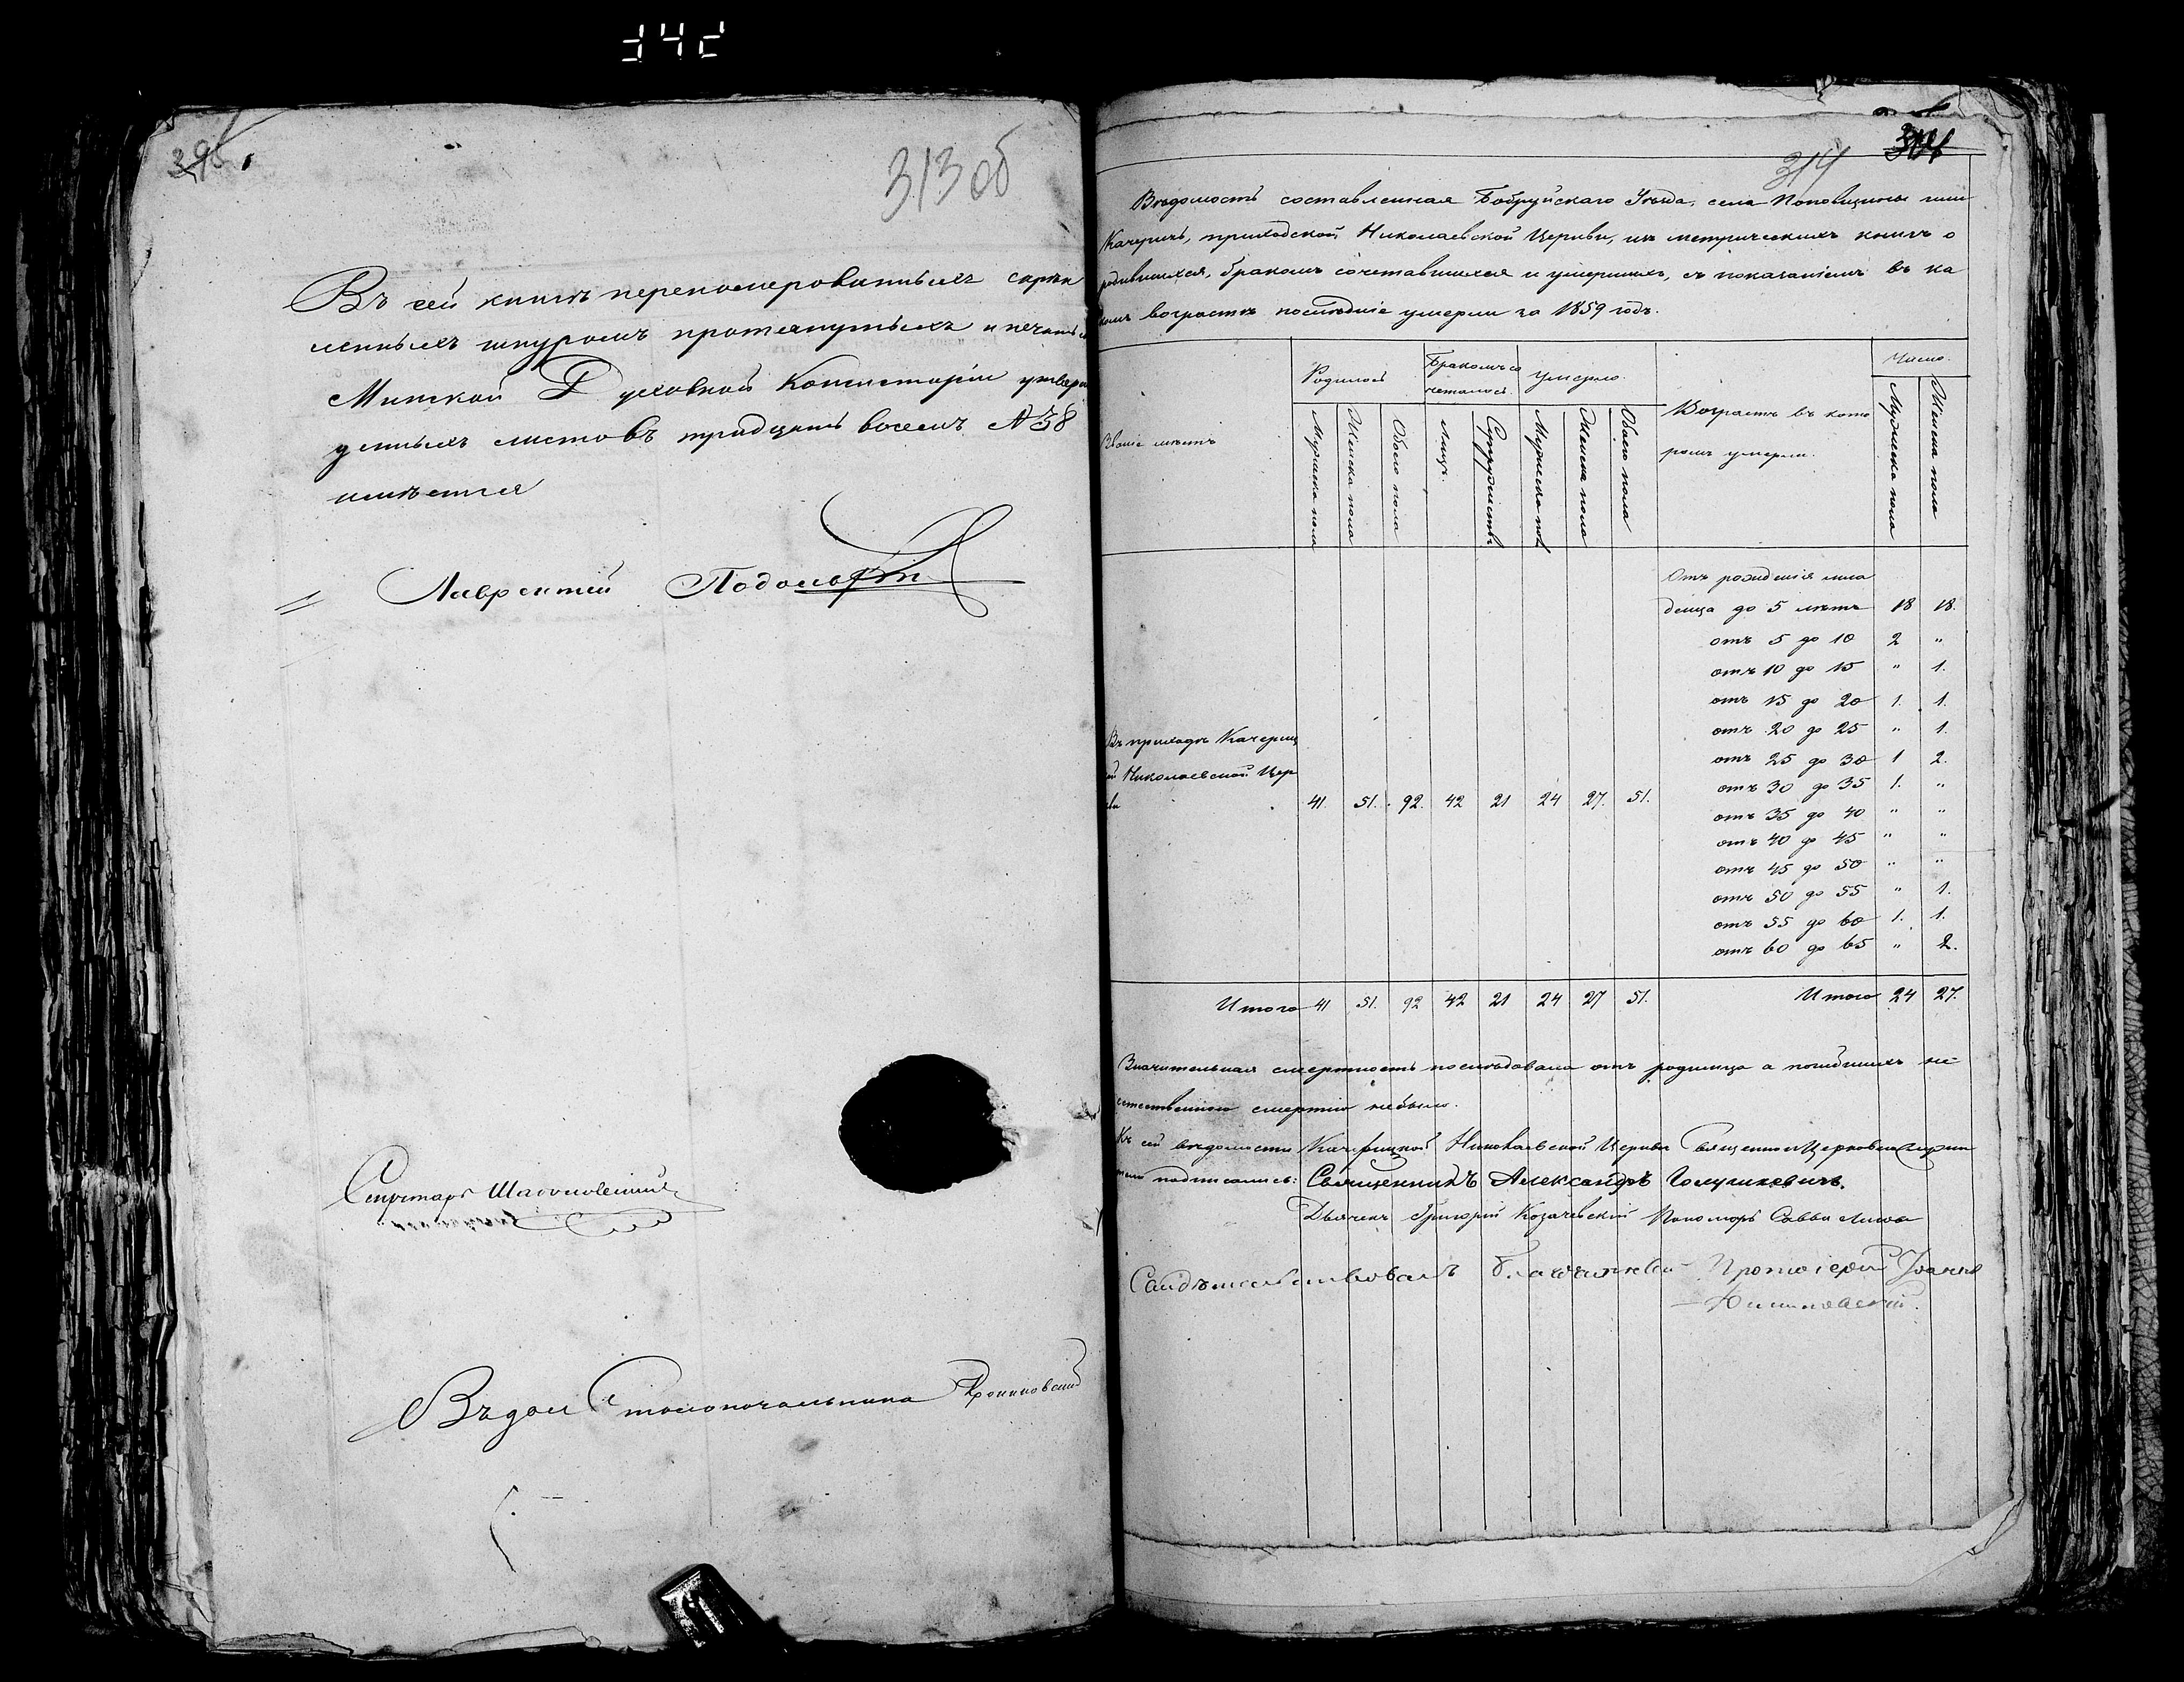 395
313 об
Въ сей книгѣ переномерованныхъ скрѣп
ленныхъ шнуромъ протянутыхъ и печатью
Минской Духовной Консисторіи утверж
денныхъ листовъ тридцать восемь №38
имѣется
Лаврентій
Секретарь
Столоначальника
314
Вѣдомость составленная Бобруйскаго Уѣзда, села Поповщины или
Качеричъ, приходской Николаевской Церкви, изъ метрическихъ книгъ о
родившихся, бракомъ сочетавшихся и умершихъ, съ показаніемъ въ ка
комъ возрастѣ послѣдніе умерли за 1859 годъ.
Званіе мѣстъ
Родилось
Бракомъ со
четалось.
Умерло.
Возрастъ въ кото
ромъ умерли.
Число.
Мужеска пола
Женска пола
Обоего пола
Лицъ.
Супружествъ
Мужеска пол
Женска пола
Обоего пола
Мужеска пола
Женска пола
Отъ рожденія мла
денца до 5 лѣтъ 18 18.
отъ 5 до 10 2 "
отъ 10 до 15 " 1.
отъ 15 до 20 1. 1.
отъ 20 до 25 " 1.
отъ 25 до 30 1 2.
отъ 30 до 35 1. "
отъ 35 до 40 " "
отъ 40 до 45 " "
отъ 45 до 50 " "
отъ 50 до 55 " 1.
отъ 55 до 60 1. 1.
отъ 60 до 65 " 2.
Въ приходѣ Качериц
кой Николаевской Цер
кви 41. 51. 92. 42 21 24 27. 51.
Итого 41 51. 92 42 21 24 27 51. Итого 24 27.
Значительная смертность послѣдовала отъ родимца а погибшихъ не
естественною смертію небыло.
Къ сей вѣдомости Качерицкой Николаевской Церкви Священноцерковнослужи
тели подписались: Священникъ Александръ Голушкевичъ.
Дьячекъ Григорій Козачевскій Пономарь Савва
Свидѣтельствовалъ Благочинный Протоіерей Іоаннъ